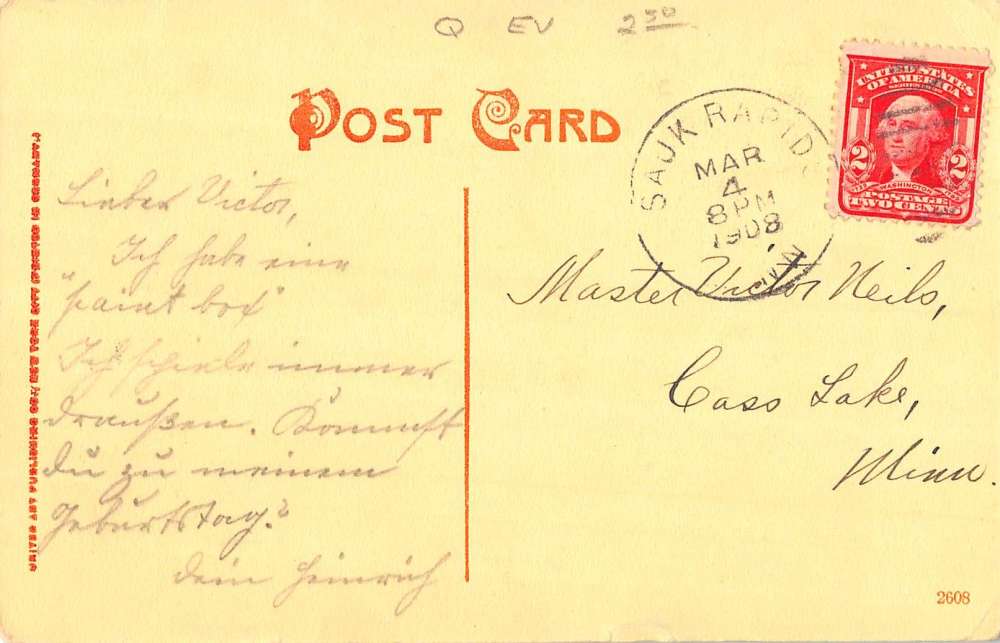 Q EV 2 50
POST CARD
SAUK RAPIDS
MAR
4
8 PM
1908
MINN
UNITED STATES
OF AMERICA
SERIES 1902
2 2
1732 WASHINGTON 1799
POSTAGE
TWO CENTS
Lieber Victor,
Ich habe eine
"paint box"
Ich spiele immer
draußen. Kommst
du zu meinem
Geburtstag?
Dein Heinrich
Master Victor Neils,
Cass Lake,
Minn.
2608